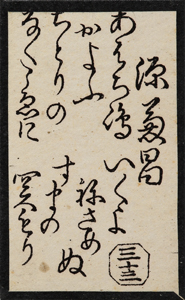 源兼昌
あはち嶋
いくよ
かよふ
ねさめぬ
ちとりの
すまの
なくこゑに
関もり
三十三